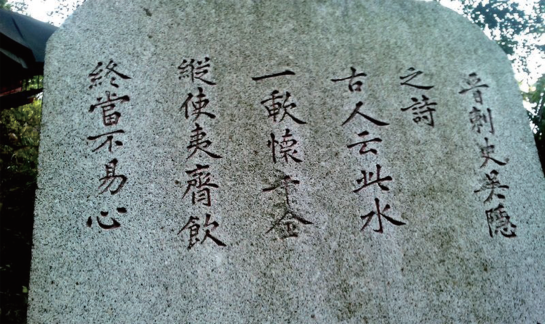 晉刺史吳隱
之詩
古人云此水
一軟懷千金
縱使夷齊飲
終當不易心